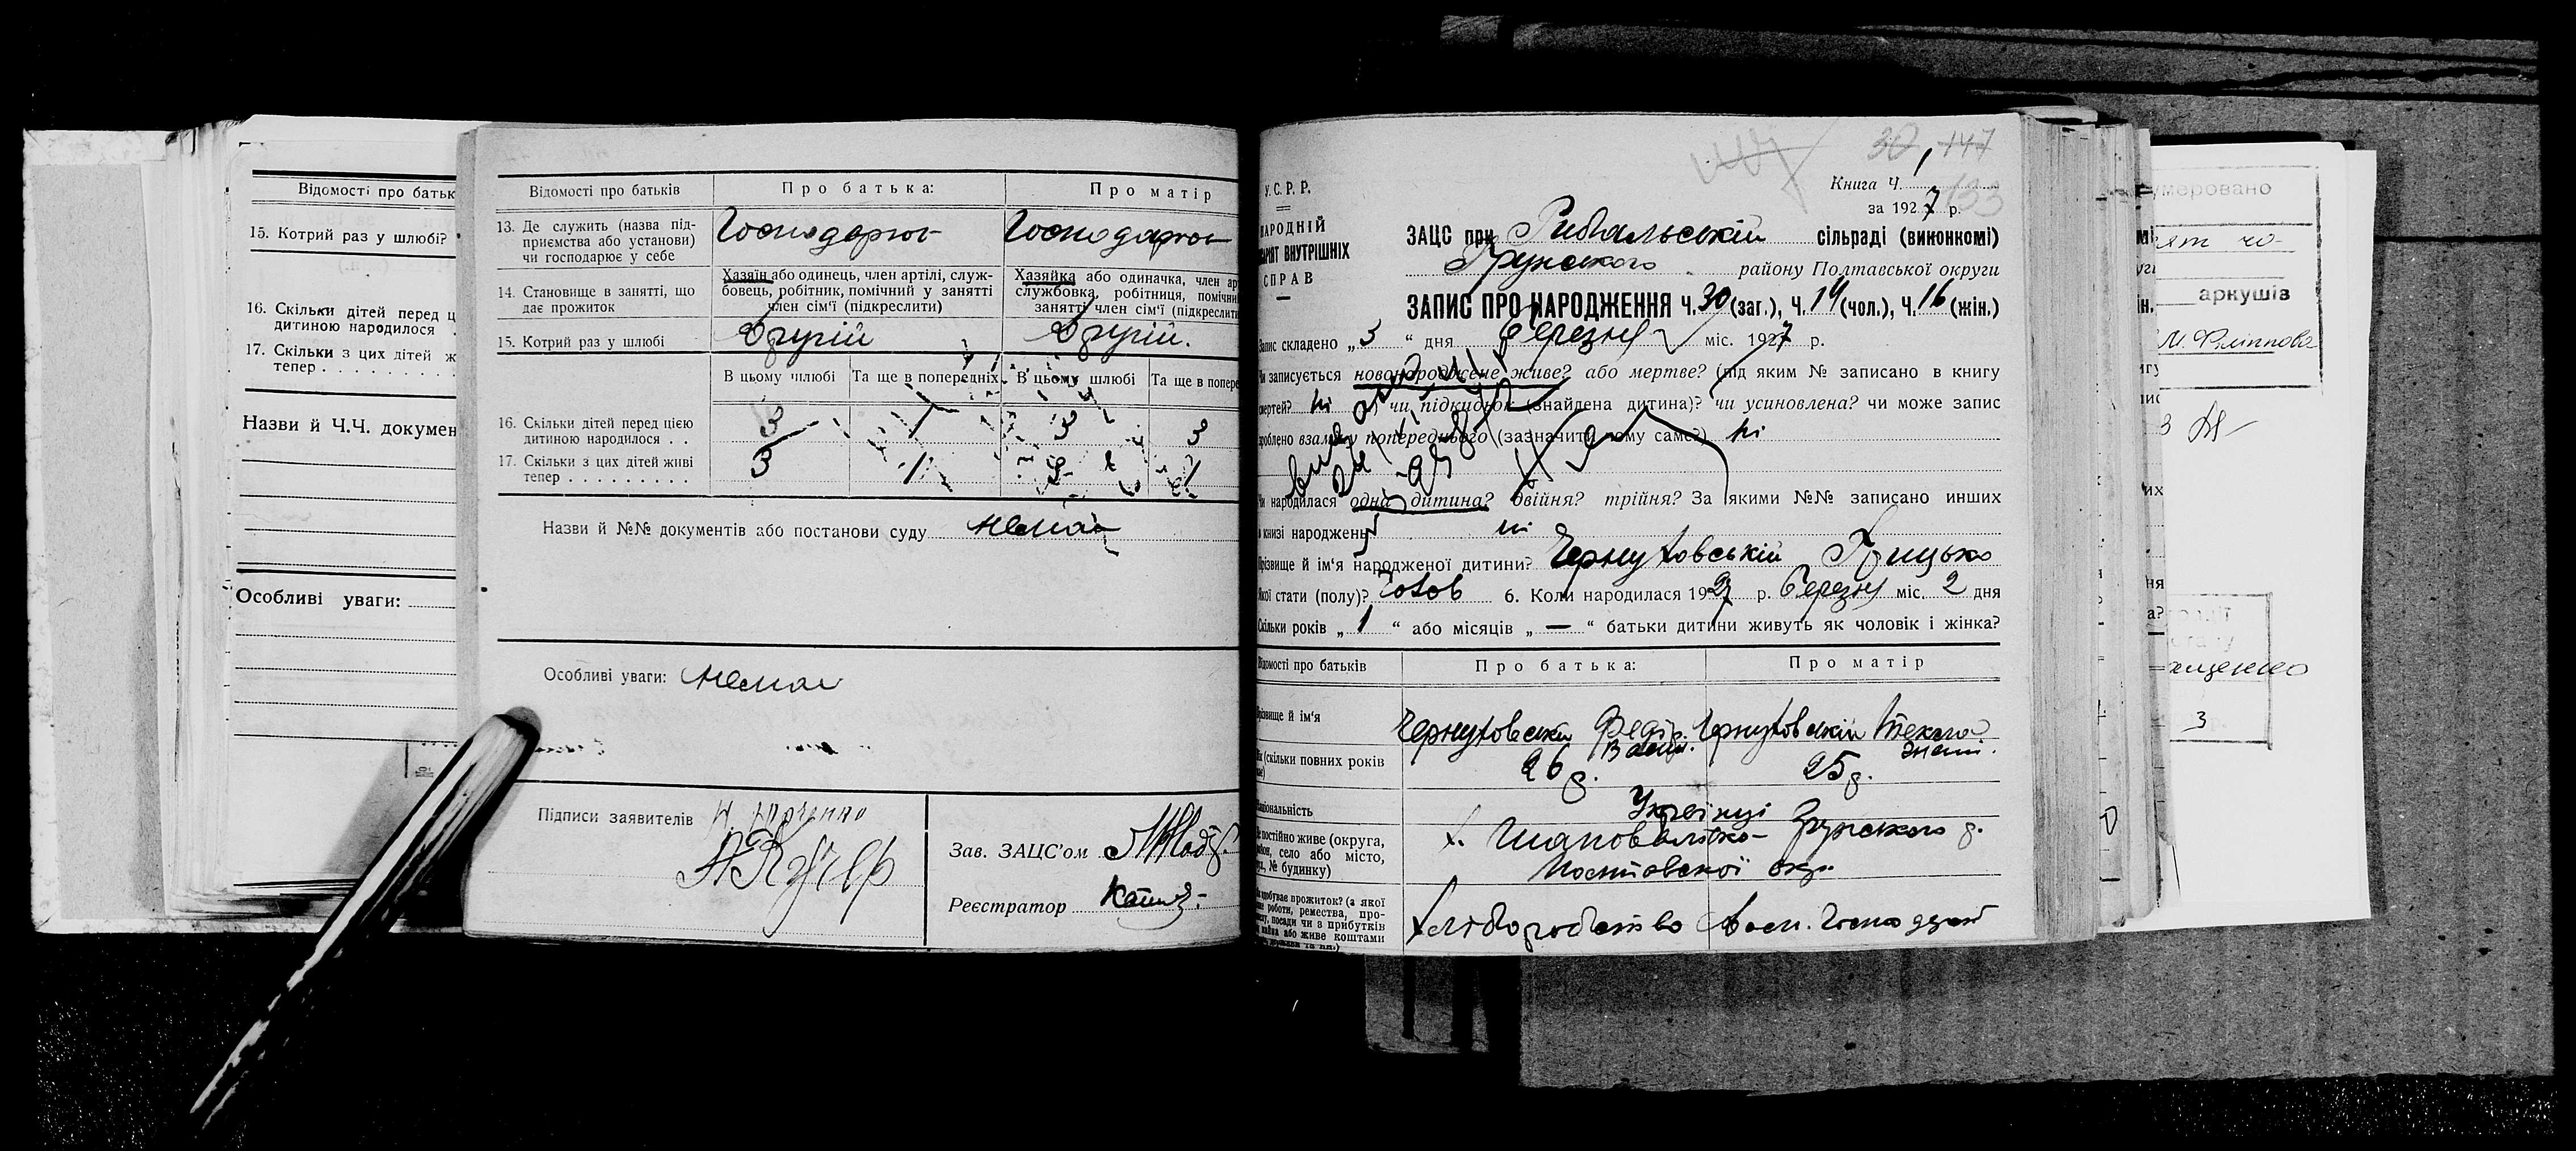 Відомості про батьк
15. Котрий раз у шлюбі?
16. Скільки дітей перед ц
дитиною народилося
17. Скільки з цих дітей ж
тепер . . . . . . . . .
Назви й Ч.Ч. докумен
Особливі уваги:
Відомості про батьків Про батька: Про матір
13. Де служить (назва під-
приємства або установи)
чи господарює у себе
Господарює Господарює
14. Становище в занятті, що
дає прожиток
Хазяїн або одинець, член артілі, служ-
бовець, робітник, помічний у занятті
член сім'ї (підкреслити)
Хазяйка або одиначка, член ар
службовка, робітниця, помічни
занятті член сім'ї (підкреслити
15. Котрий раз у шлюбі Другій Другій.
В цьому шлюбі Та ще в попередніх В цьому шлюбі Та ще в попере
16. Скільки дітей перед цією
дитиною народилося . . 3 1 3 3
17. Скільки з цих дітей живі
тепер . . . . . . . . . 3 1 1
Назви й №№ документів або постанови суду немає
Особливі уваги: немає
Підписи заявителів
Зав. ЗАЦС'ом
Реєстратор
30 147
У.С.Р.Р.
НАРОДНІЙ
ВНУТРІШНІХ
СПРАВ
Книга Ч. 1
за 1927 р.
ЗАЦС при Рибальській сільраді (виконкомі)
Грунського району Полтавської округи
ЗАПИС ПРО НАРОДЖЕННЯ Ч. 30 (заг.), Ч. 14 (чол.), Ч. 16 (жін.)
Запис складено „3“ дня березня міс. 1927 р.
Чи записується новонароджене живе? або мертве? (під яким № записано в книгу
смертей? ні) чи підкидьок (знайдена дитина)? чи усиновлена? чи може запис
зроблено взамін попереднього (зазначити чому саме?) ні
Чи народилася одна дитина? двійня? трійня? За якими №№ записано инших
в книзі народжень? ні
Прізвище й ім'я народженої дитини? Чернуховській Грицько
Якої стати (полу)? Чолов 6. Коли народилася 1927 р. березня міс. 2 дня
Скільки років „1“ або місяців „—“ батьки дитини живуть як чоловік і жінка?
Відомості про батьків Про батька: Про матір
Прізвище й ім'я
Чернуховській Федір Васил. Чернуховській Текля
Вік (скільки повних років
26 р. 25 р.
Національність Українці
Де постійно живе (округа,
район, село або місто,
вул., № будинку)
х. Шаповалівка Грунського р.
Полтавської окр.
Хліборобство дом. господар
умеровано
аркушів
М. Філіппова
3